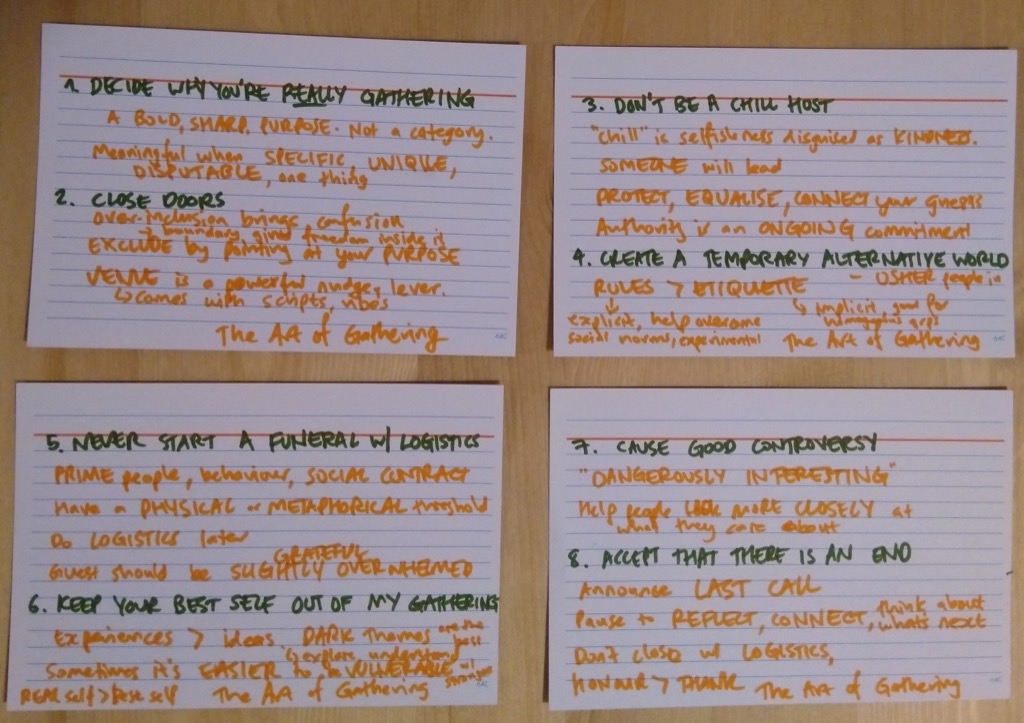 1. DECIDE WHY YOU'RE REALLY GATHERING
A BOLD, SHARP PURPOSE. Not a category.
Meaningful when SPECIFIC, UNIQUE,
DISPUTABLE, one thing
2. CLOSE DOORS
Over-inclusion brings confusion
→ boundary give freedom inside it
EXCLUDE by pointing at your PURPOSE
VENUE is a powerful nudge, lever.
↳ comes with scripts, vibes
The Art of Gathering
3. DON'T BE A CHILL HOST
"Chill" is selfishness disguised as KINDNESS.
SOMEONE will lead
PROTECT, EQUALISE, CONNECT your guests
Authority is an ONGOING commitment
4. CREATE A TEMPORARY ALTERNATIVE WORLD
RULES > ETIQUETTE - USHER people in
↓ ↳ implicit, good for
explicit, help overcome
social norms, experimental The Art of Gathering
5. NEVER START A FUNERAL W/ LOGISTICS
PRIME people, behaviour, SOCIAL CONTRACT
Have a PHYSICAL or METAPHORICAL threshold
Do LOGISTICS later
GRATEFUL
Guest should be SLIGHTLY OVERWHELMED
6. KEEP YOUR BEST SELF OUT OF MY GATHERING
Experiences > ideas. DARK Themes are the best
↳ explore, understand
Sometimes it's EASIER to be VULNERABLE w/ strangers
REAL self > best self The Art of Gathering
7. CAUSE GOOD CONTROVERSY
"DANGEROUSLY INTERESTING"
Help people LOOK MORE CLOSELY at
what they care about
8. ACCEPT THAT THERE IS AN END
Announce LAST CALL
Pause to REFLECT, CONNECT, think about
what's next
Don't close w/ LOGISTICS,
HONOUR > THANK The Art of Gathering